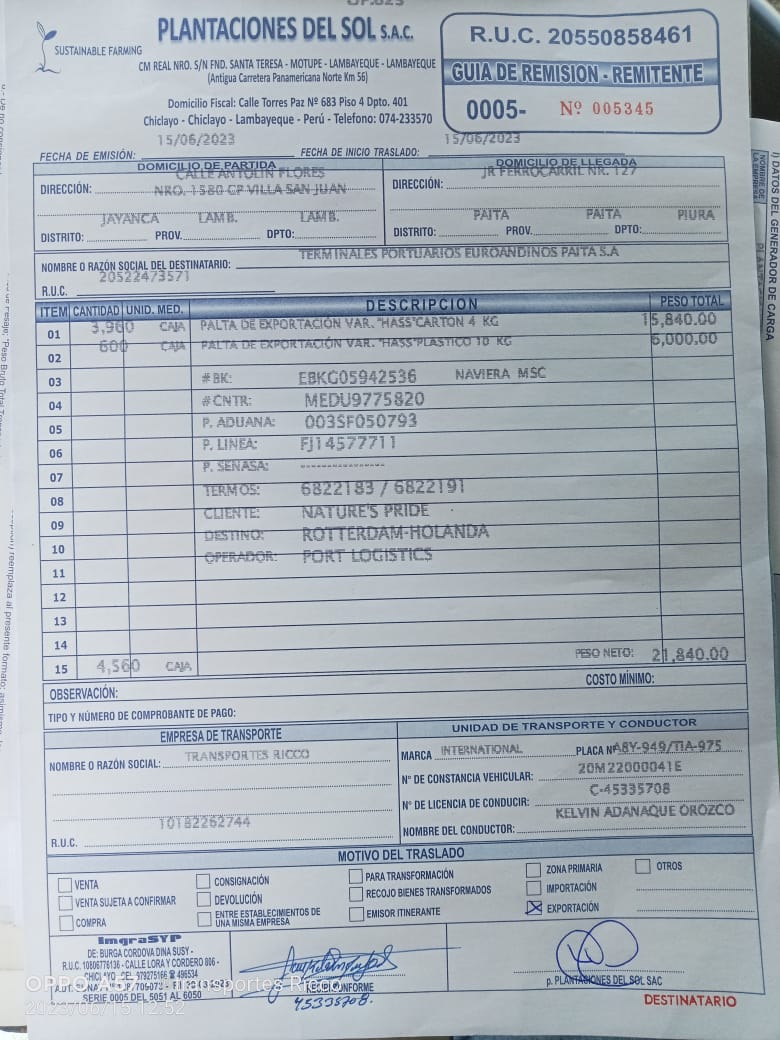 SUSTAINABLE FARMING
PLANTACIONES DEL SOL S.A.C.
CM REAL NRO. S/N FND. SANTA TERESA - MOTUPE - LAMBAYEQUE - LAMBAYEQUE
(Antigua Carretera Panamericana Norte Km 56)
Domicilio Fiscal: Calle Torres Paz Nº 683 Piso 4 Dpto. 401
Chiclayo - Chiclayo - Lambayeque - Perú - Telefono: 074-233570
R.U.C. 20550858461
GUIA DE REMISION - REMITENTE
0005- Nº 005345
FECHA DE EMISIÓN: 15/06/2023 FECHA DE INICIO TRASLADO: 15/06/2023
DOMICILIO DE PARTIDA
CALLE ANTOLIN FLORES
DIRECCIÓN: NRO. 1580 CP VILLA SAN JUAN
JAYANCA LAMB. LAMB.
DISTRITO: PROV. DPTO:
DOMICILIO DE LLEGADA
JR FERROCARRIL NR. 127
DIRECCIÓN:
PAITA PAITA PIURA
DISTRITO: PROV. DPTO:
NOMBRE O RAZÓN SOCIAL DEL DESTINATARIO: TERMINALES PORTUARIOS EUROANDINOS PAITA S.A
20522473571
R.U.C.
ITEM CANTIDAD UNID. MED. DESCRIPCION PESO TOTAL
01 3,960 CAJA PALTA DE EXPORTACIÓN VAR. "HASS"CARTON 4 KG 15,840.00
02 600 CAJA PALTA DE EXPORTACIÓN VAR. "HASS"PLASTICO 10 KG 6,000.00
03 #BK: EBKG05942536 NAVIERA MSC
04 #CNTR: MEDU9775820
05 P. ADUANA: 003SF050793
06 P. LINEA: FJ14577711
07 P. SENASA: ----------------
08 TERMOS: 6822183 / 6822191
09 CLIENTE: NATURE'S PRIDE
10 DESTINO: ROTTERDAM-HOLANDA
11 OPERADOR: PORT LOGISTICS
12
13
14
15 4,560 CAJA PESO NETO: 21,840.00
OBSERVACIÓN: COSTO MÍNIMO:
TIPO Y NÚMERO DE COMPROBANTE DE PAGO:
EMPRESA DE TRANSPORTE
NOMBRE O RAZÓN SOCIAL: TRANSPORTES RICCO
10182262744
R.U.C.
UNIDAD DE TRANSPORTE Y CONDUCTOR
MARCA INTERNATIONAL PLACA Nº A8Y-949/TIA-975
Nº DE CONSTANCIA VEHICULAR: 20M22000041E
Nº DE LICENCIA DE CONDUCIR: C-45335708
NOMBRE DEL CONDUCTOR: KELVIN ADANAQUE OROZCO
MOTIVO DEL TRASLADO
VENTA
VENTA SUJETA A CONFIRMAR
COMPRA
CONSIGNACIÓN
DEVOLUCIÓN
ENTRE ESTABLECIMIENTOS DE
UNA MISMA EMPRESA
PARA TRANSFORMACIÓN
RECOJO BIENES TRANSFORMADOS
EMISOR ITINERANTE
ZONA PRIMARIA
IMPORTACIÓN
EXPORTACIÓN
OTROS
ImgraSYP
DE: BURGA CORDOVA DINA SUSY -
R.U.C. 10806776136 - CALLE LORA Y CORDERO 806 -
SERIE 0005 DEL 5051 AL 6050
RECIBI CONFORME
45335708.
p. PLANTACIONES DEL SOL SAC
DESTINATARIO
2023/06/15 12:52
I) DATOS DEL GENERADOR DE CARGA
NOMBRE DE
LA EMPRESA
reemplaza al presente formato;